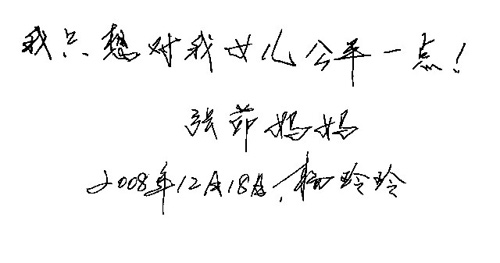 我只想对我女儿公平一点！
张茆妈妈
2008年12月18日，杨玲玲